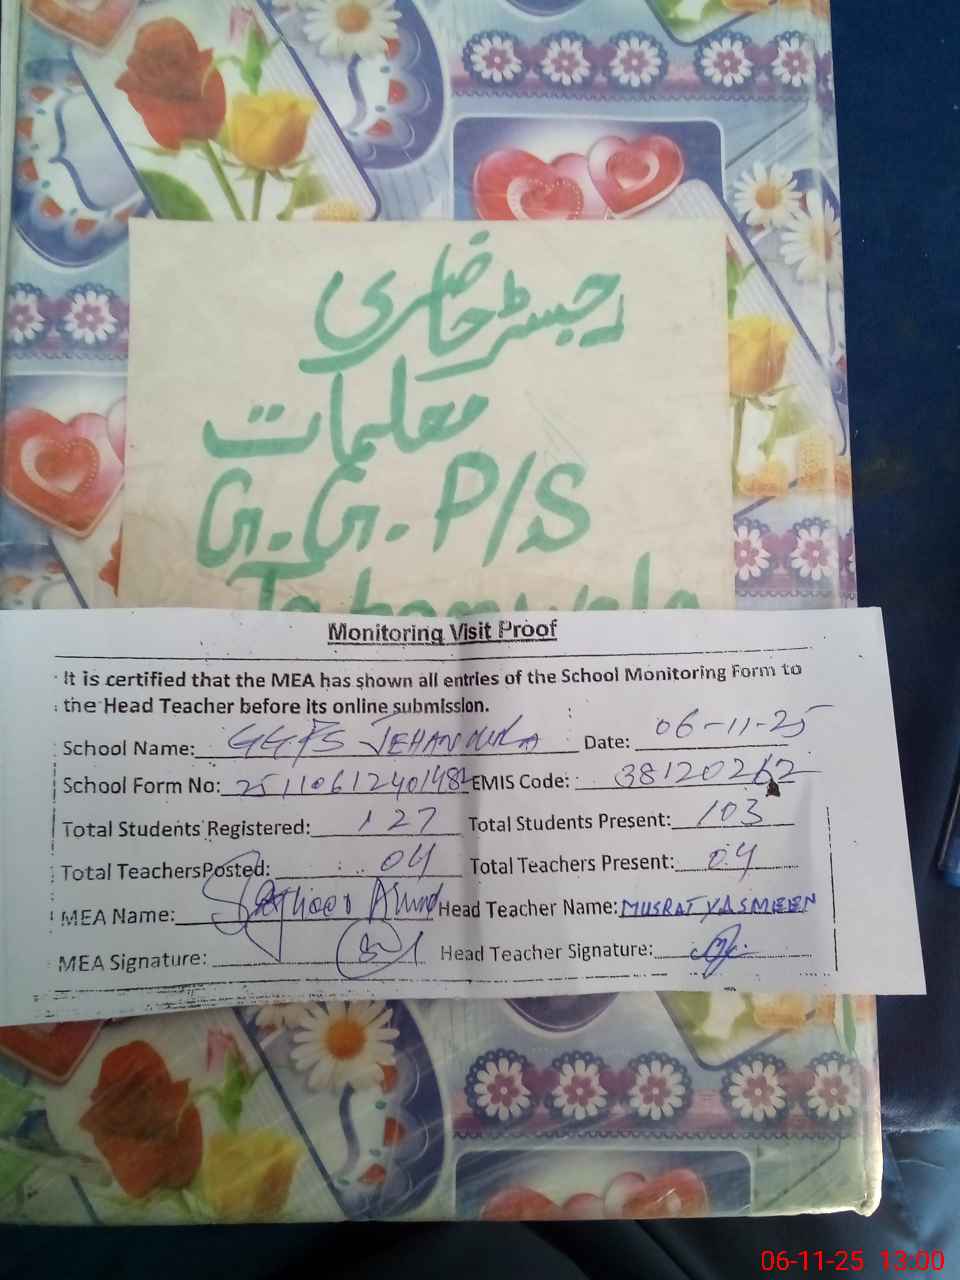 رجسٹر حاضری
معلمات
G.G.P/S
Monitoring Visit Proof
It is certified that the MEA has shown all entries of the School Monitoring Form to
the Head Teacher before its online submission.
School Name: GGPS Date: 06-11-25
School Form No: EMIS Code: 38120262
Total Students Registered: 127 Total Students Present: 103
Total TeachersPosted: 04 Total Teachers Present: 04
MEA Name: Head Teacher Name: MUSRAT YASMEEN
MEA Signature: Head Teacher Signature:
06-11-25 13:00